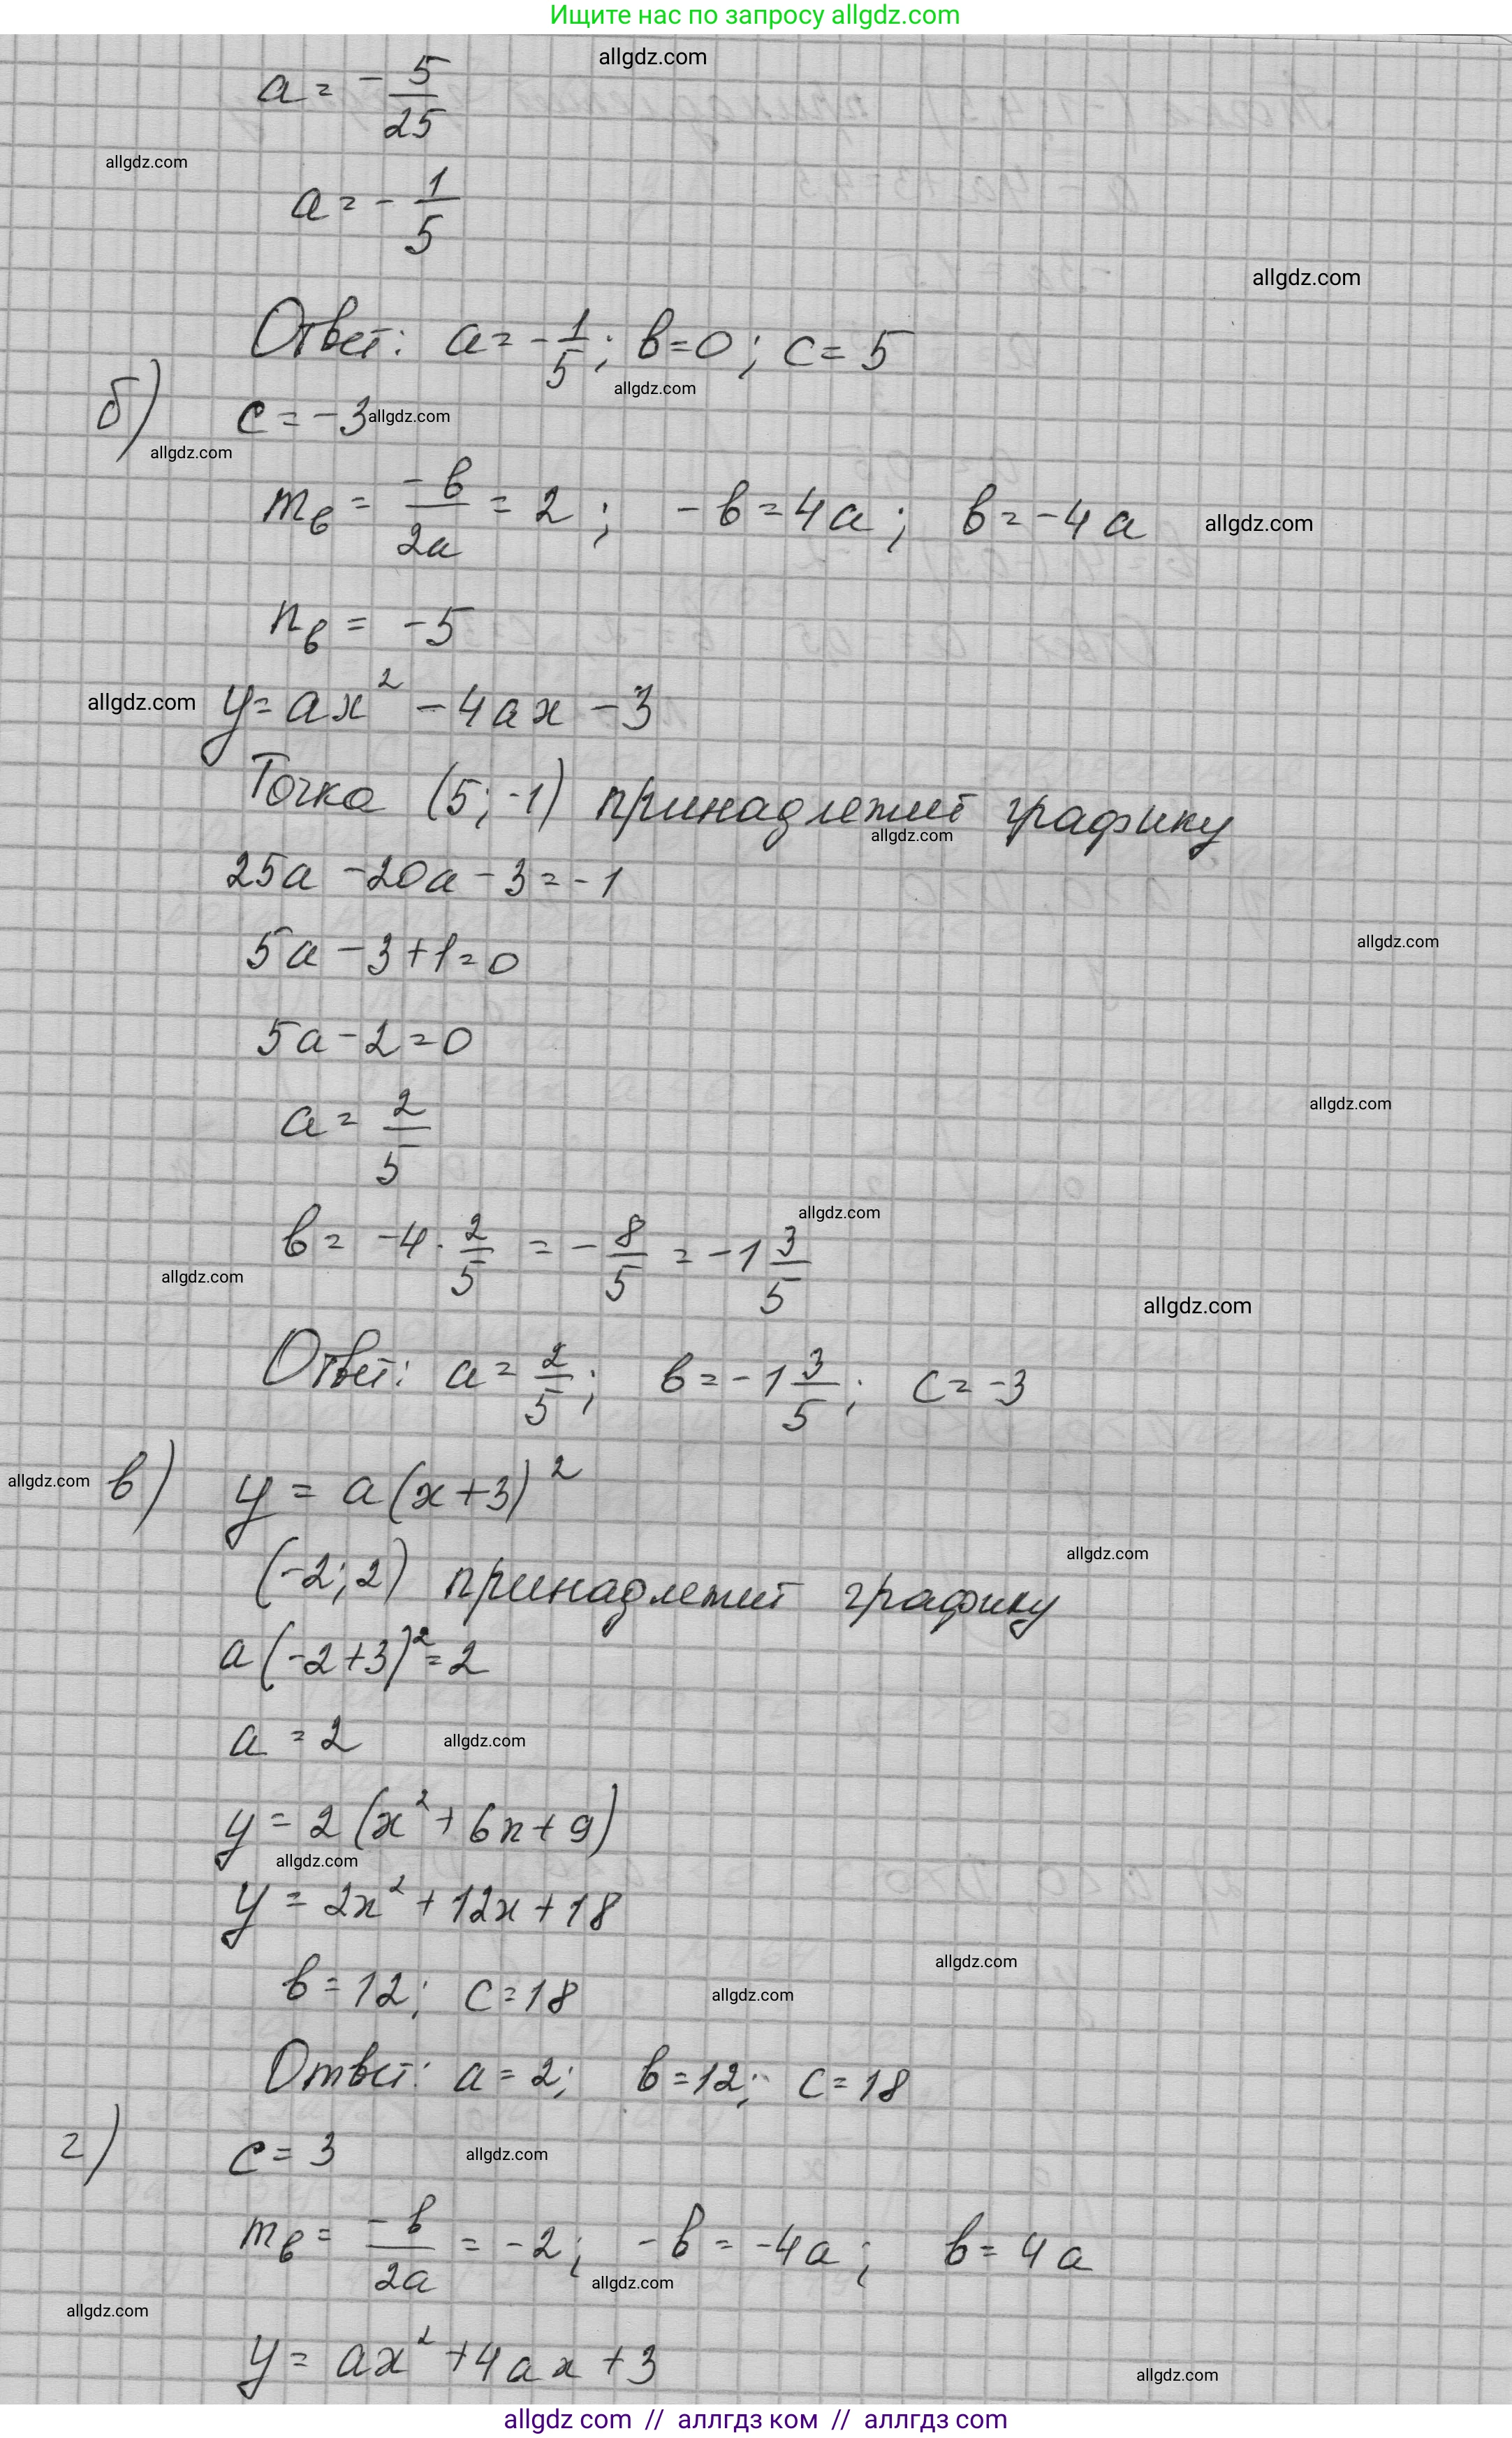 Ищите нас по запросу allgdz.com
allgdz.com
a = - 5/25
allgdz.com
a = - 1/5
allgdz.com
Ответ: a = - 1/5; в = 0; c = 5
allgdz.com
б) c = -3 allgdz.com
allgdz.com
m_в = -в/2a = 2; -в = 4a; в = -4a allgdz.com
n_в = -5
allgdz.com y = ax² - 4ax - 3
Точка (5; -1) принадлежит графику
allgdz.com
25a - 20a - 3 = -1
5a - 3 + 1 = 0 allgdz.com
5a - 2 = 0
a = 2/5 allgdz.com
allgdz.com
в = -4 · 2/5 = - 8/5 = -1 3/5
allgdz.com allgdz.com
Ответ: a = 2/5; в = -1 3/5; c = -3
allgdz.com в) y = a(x+3)²
allgdz.com
(-2; 2) принадлежит графику
a(-2+3)² = 2
a = 2 allgdz.com
y = 2(x² + 6x + 9)
allgdz.com
y = 2x² + 12x + 18
allgdz.com
в = 12; c = 18 allgdz.com
Ответ: a = 2; в = 12; c = 18
г) c = 3 allgdz.com
m_в = -в/2a = -2; -в = -4a; в = 4a
allgdz.com
allgdz.com
y = ax² + 4ax + 3 allgdz.com
allgdz com // аллгдз ком // аллгдз com